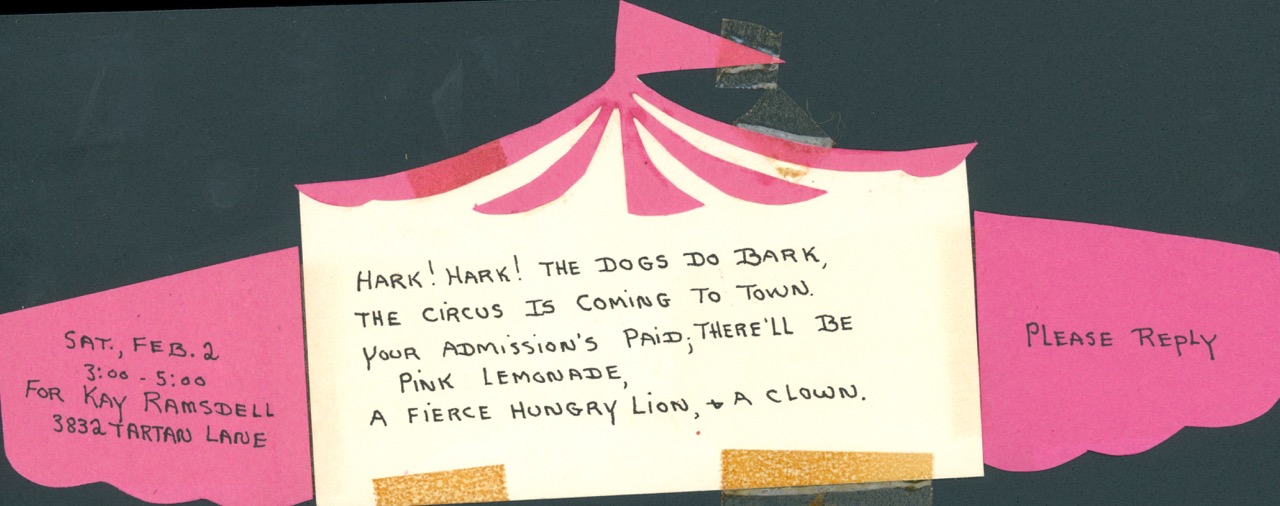 SAT., FEB. 2
3:00 - 5:00
FOR KAY RAMSDELL
3832 TARTAN LANE
HARK! HARK! THE DOGS DO BARK,
THE CIRCUS IS COMING TO TOWN.
YOUR ADMISSION'S PAID; THERE'LL BE
PINK LEMONADE,
A FIERCE HUNGRY LION, & A CLOWN.
PLEASE REPLY